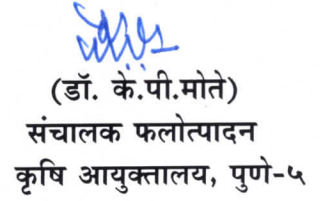 (डॉ. के.पी.मोते)
संचालक फलोत्पादन
कृषि आयुक्तालय, पुणे-५